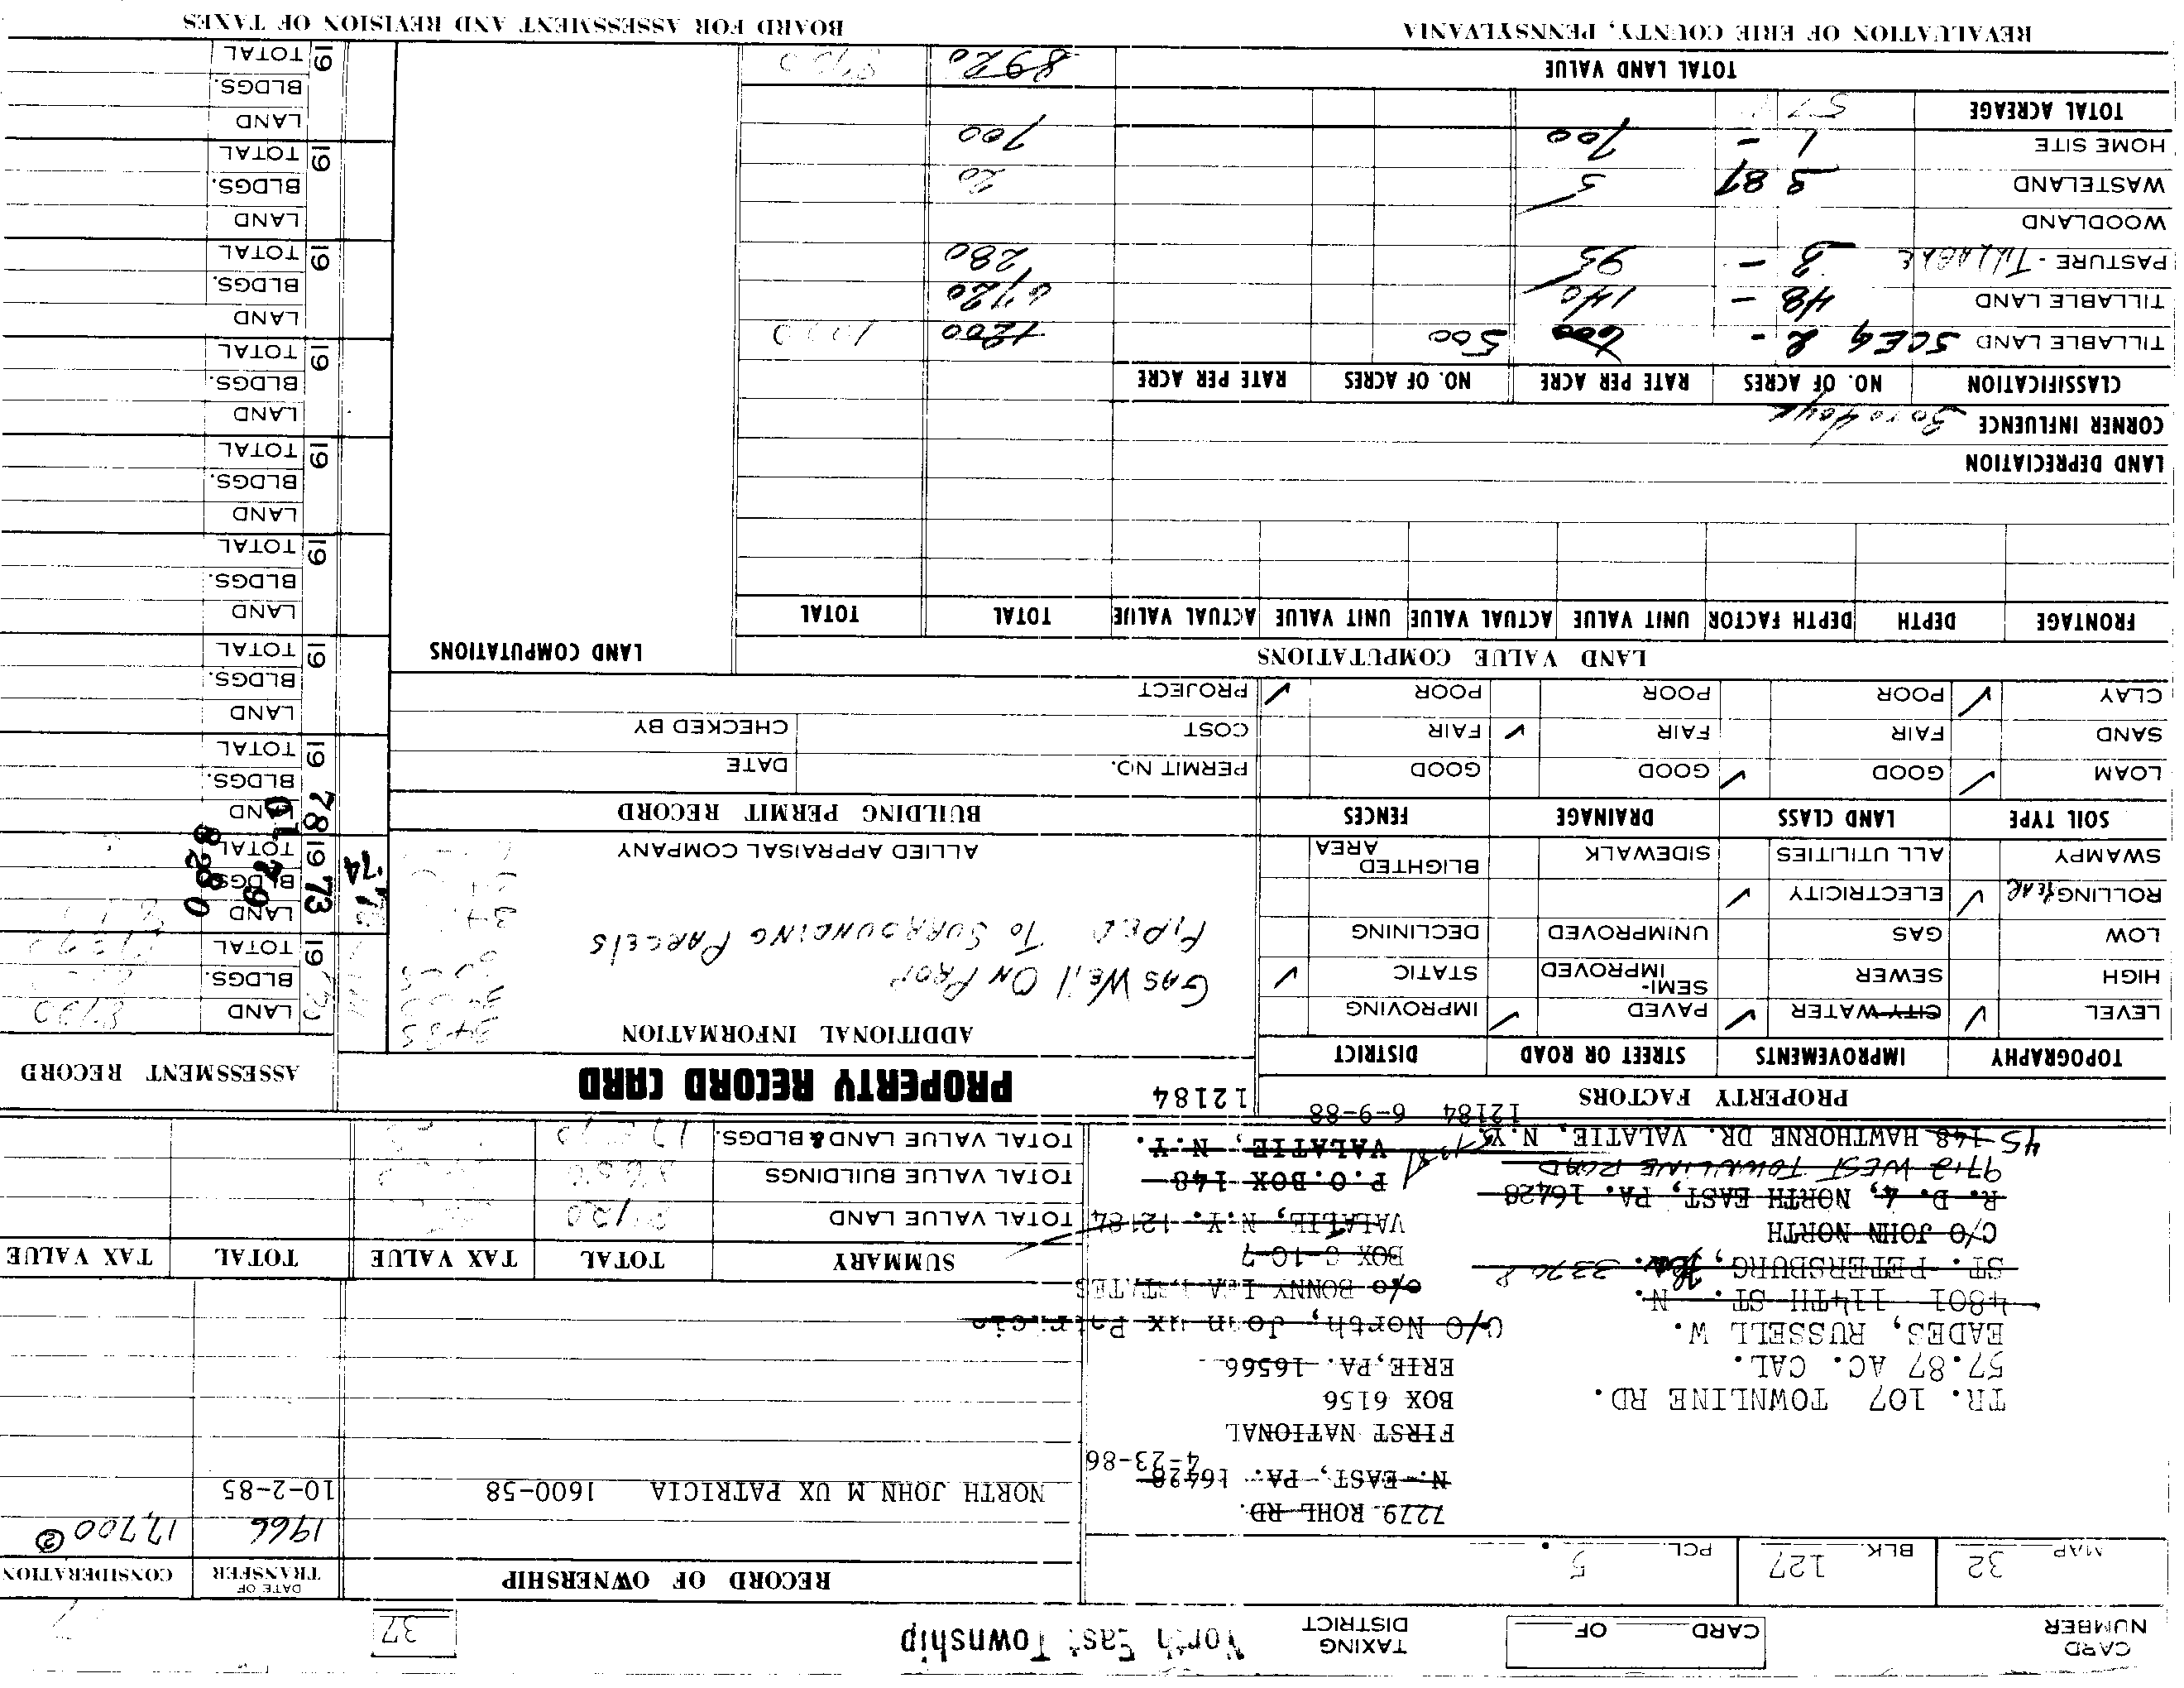 CARD NUMBER
CARD OF
TAXING DISTRICT North East Township
37
MAP 32 BLK. 127 PCL. 5
RECORD OF OWNERSHIP DATE OF TRANSFER CONSIDERATION
1966 17,700 ②
7279 ROHL RD.
NORTH JOHN M UX PATRICIA 1600-58 10-2-85
N. EAST, PA. 16428
4-23-86
FIRST NATIONAL
TR. 107 TOWNLINE RD. BOX 6156
57.87 AC. CAL. ERIE, PA. 16566
EADES, RUSSELL W. C/O North, John ux Patricia
4801 114TH ST. N. c/o BONNY
ST. PETERSBURG, 33708 BOX
C/O JOHN NORTH VALATIE, N.Y. 12184
R. D. 4, NORTH EAST, PA. 16428 P.O. BOX 148
9712 WEST TOWNLINE ROAD VALATIE, N.Y.
45 148 HAWTHORNE DR. VALATIE, N.Y.
12184 6-9-88
12184
SUMMARY TOTAL TAX VALUE TOTAL TAX VALUE
TOTAL VALUE LAND
TOTAL VALUE BUILDINGS
TOTAL VALUE LAND & BLDGS.
PROPERTY FACTORS
PROPERTY RECORD CARD
ASSESSMENT RECORD
TOPOGRAPHY IMPROVEMENTS STREET OR ROAD DISTRICT
LEVEL ✓ CITY WATER ✓ PAVED ✓ IMPROVING
HIGH SEWER SEMI-IMPROVED STATIC ✓
LOW GAS UNIMPROVED DECLINING
ROLLING REAR ✓ ELECTRICITY ✓
SWAMPY ALL UTILITIES SIDEWALK BLIGHTED AREA
SOIL TYPE LAND CLASS DRAINAGE FENCES
LOAM ✓ GOOD ✓ GOOD GOOD
SAND FAIR FAIR ✓ FAIR
CLAY ✓ POOR POOR POOR ✓
ADDITIONAL INFORMATION
GAS WELL ON PROP
PIPED TO SURROUNDING PARCELS
ALLIED APPRAISAL COMPANY
BUILDING PERMIT RECORD
PERMIT NO. DATE
COST CHECKED BY
PROJECT
LAND VALUE COMPUTATIONS
LAND COMPUTATIONS
FRONTAGE DEPTH DEPTH FACTOR UNIT VALUE ACTUAL VALUE UNIT VALUE ACTUAL VALUE TOTAL TOTAL
LAND DEPRECIATION
CORNER INFLUENCE
CLASSIFICATION NO. OF ACRES RATE PER ACRE NO. OF ACRES RATE PER ACRE
TILLABLE LAND 2 - 600 500 1200 1000
TILLABLE LAND 48 - 140 6720
PASTURE - TILLABLE 3 - 95 280
WOODLAND
WASTELAND 3 87 5 20
HOME SITE 1 - 700 700
TOTAL ACREAGE 57
TOTAL LAND VALUE 8920
LAND
BLDGS.
19 TOTAL
LAND 8280
BLDGS.
19 73 TOTAL
'74
78 LAND
BLDGS.
19 TOTAL
LAND
BLDGS.
19 TOTAL
LAND
BLDGS.
19 TOTAL
LAND
BLDGS.
19 TOTAL
LAND
BLDGS.
19 TOTAL
LAND
BLDGS.
19 TOTAL
LAND
BLDGS.
19 TOTAL
LAND
BLDGS.
19 TOTAL
REVALUATION OF ERIE COUNTY, PENNSYLVANIA
BOARD FOR ASSESSMENT AND REVISION OF TAXES